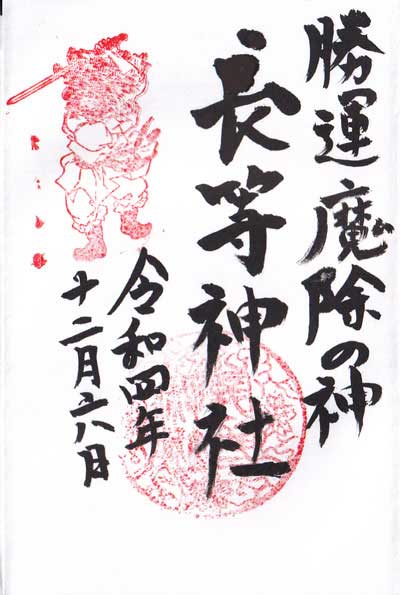 勝運魔除の神
長等神社
令和四年
十二月六日